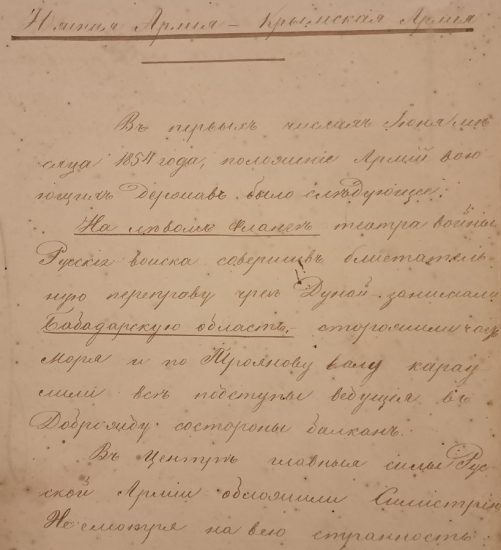 Южная Армія – Крымская Армія
Въ первыхъ числахъ Іюня мѣ
сяца 1854 года, положеніе Армій вою
ющихъ Державъ было слѣдующее:
На лѣвомъ флангѣ театра войны
Русскія войска совершивъ блистатель-
ную переправу чрезъ Дунай занимали
Бабадагскую область, – сторожили часть
моря и по Троянову валу карау
лили всѣ подступы ведущія въ
Добруджу состороны балканъ.
Въ Центрѣ главныя силы Рус-
ской Арміи обложили Силистрію
Несмотря на всю странность